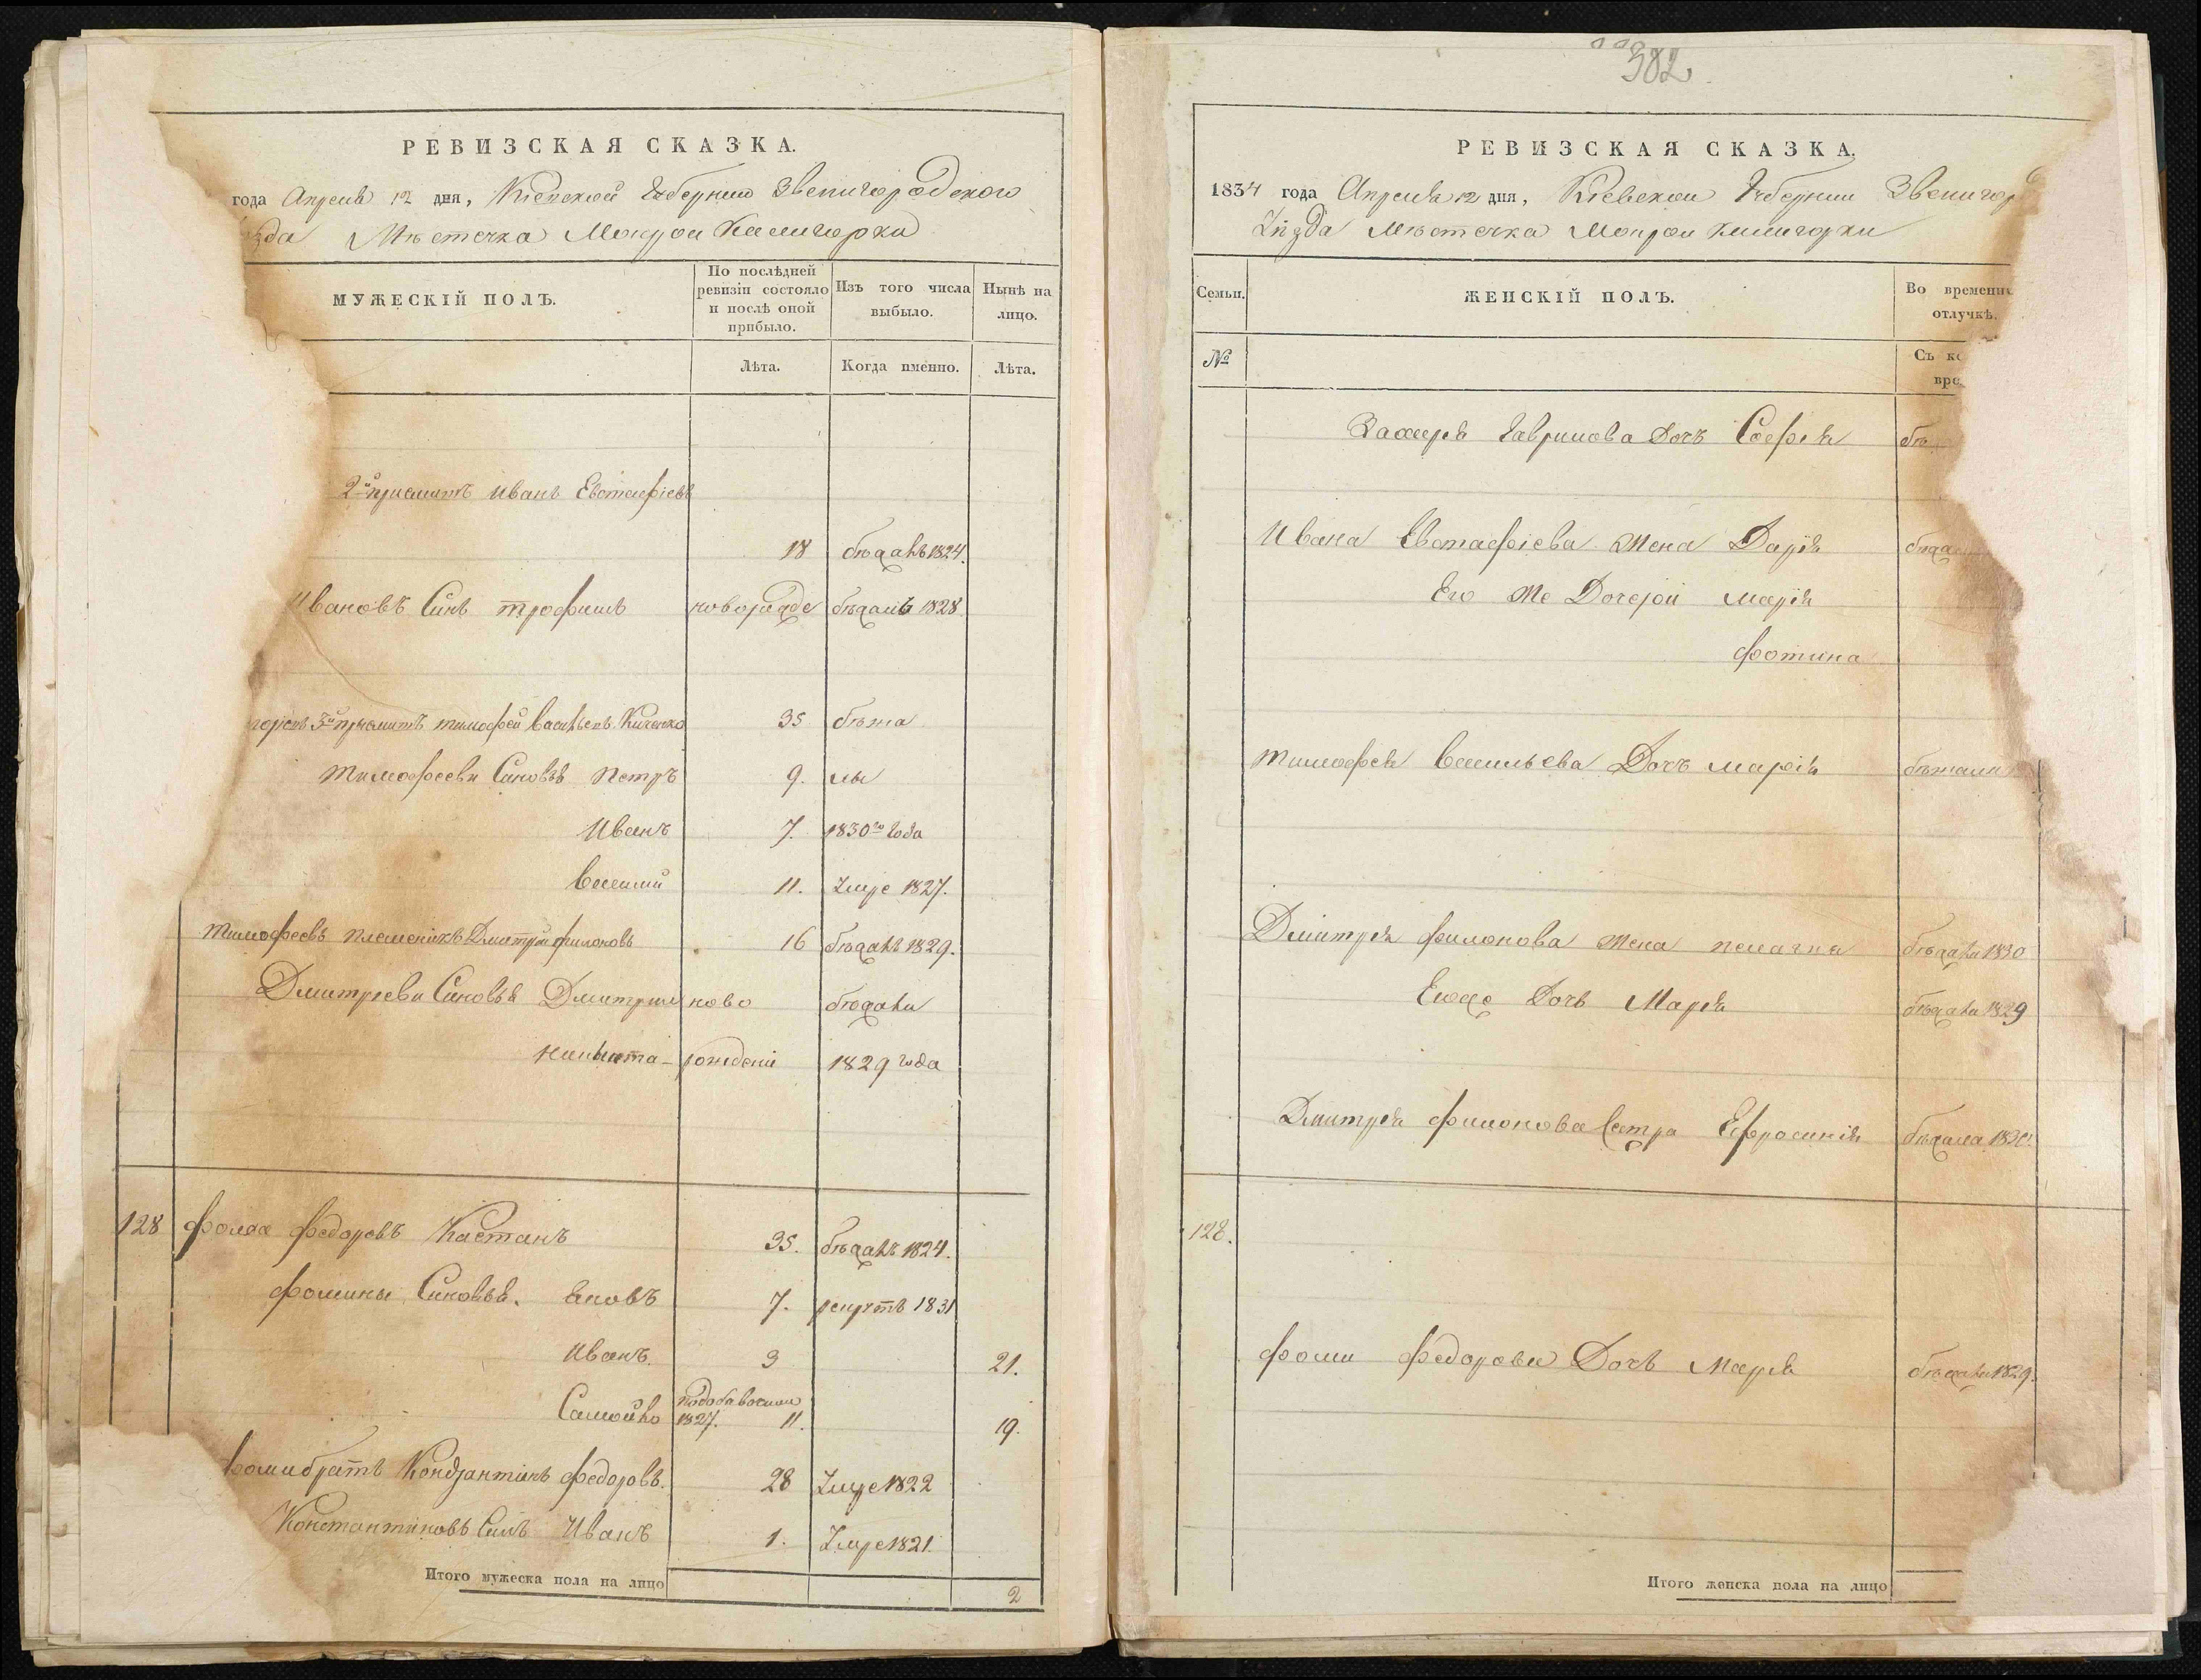 РЕВИЗСКАЯ СКАЗКА.
года Апреля 12 дня, Кіевской Губерніи Звенигородского
зда Мѣстечка Мокрой Калигорки
МУЖЕСКІЙ ПОЛЪ.
По послѣдней ревизіи состояло и послѣ оной прибыло.
Изъ того числа выбыло.
Нынѣ на лицо.
Лѣта.
Когда именно.
Лѣта.
2й приемитъ Иванъ Евстафіевъ
18 бѣжалъ 1824.
Ивановъ Синъ Трофимъ новорожде бѣжалъ 1828
3й приемитъ Тимофей Васильевъ 35 бѣжа
Тимофееви Синовья Петръ 9. лы
Иванъ 7. 1830го года
Василий 11. Умре 1827.
Тимофеевъ племеникъ Дмитрій Филоновъ 16 бѣжалъ 1829.
Дмитрееви Синовья Дмитрий ново бѣжали
Никита рожденіи 1829 года
128 Фома Федоровъ Кастанъ 35. бѣжалъ 1824.
Фомины Синовья. Яковъ 7. рекрутъ 1831
Иванъ. 3 21.
Самойло 1827. 11. 19.
Фоми братъ Кондзантинъ Федоровъ. 28 Умре 1822
Константиновъ Синъ Иванъ 1. Умре 1821.
Итого мужеска пола на лицо 2
382
РЕВИЗСКАЯ СКАЗКА.
1834 года Апреля 12 дня, Кіевской Губерніи Звенигор
Уѣзда Мѣстечка Мокрой Калигорки
Семьи.
ЖЕНСКІЙ ПОЛЪ.
Во временн отлучкѣ.
№
Съ ко вре
Захаря Гаврилова Дочъ Софія бѣ
Ивана Евстафіева Жена Дарія бѣжа
Его Же Дочерои Марія
Фотина
Тимофея Васильева Дочъ Марія бѣжали
Дмитрея Филонова Жена Пелагия бѣжала 1830
Егоже Дочъ Марія бѣжала 1829
Дмитрея Филонова Сестра Ефросинія бѣжала
128.
Фоми Федорова Дочъ Марія бѣжала 1829.
Итого женска пола на лицо